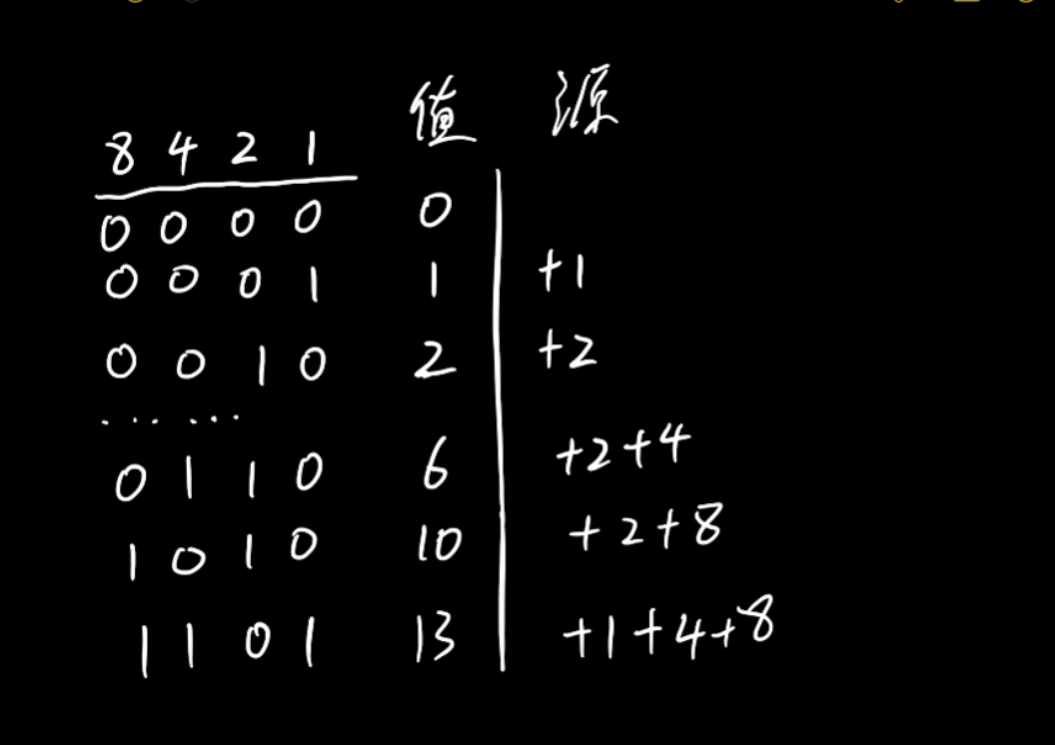 值 源
8 4 2 1
0 0 0 0 0
0 0 0 1 1 +1
0 0 1 0 2 +2
... ...
0 1 1 0 6 +2+4
1 0 1 0 10 +2+8
1 1 0 1 13 +1+4+8